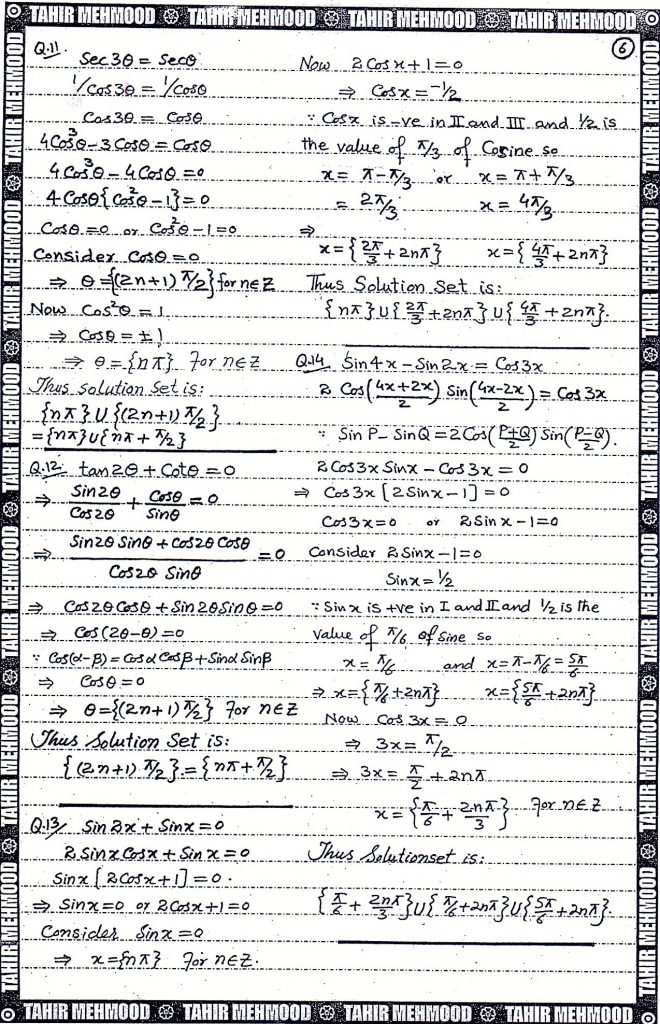 TAHIR MEHMOOD TAHIR MEHMOOD TAHIR MEHMOOD TAHIR MEHMOOD
6
Q.11 Sec3θ = Secθ
1/Cos3θ = 1/Cosθ
Cos3θ = Cosθ
4Cos³θ - 3Cosθ = Cosθ
4Cos³θ - 4Cosθ = 0
4Cosθ{Cos²θ - 1} = 0
Cosθ = 0 or Cos²θ - 1 = 0
Consider Cosθ = 0
⇒ θ = {(2n+1) π/2} for n∈Z
Now Cos²θ = 1
⇒ Cosθ = ±1
⇒ θ = {nπ} For n∈Z
Thus solution Set is:
{nπ} ∪ {(2n+1) π/2}
= {nπ} ∪ {nπ + π/2}
Q.12 tan2θ + Cotθ = 0
⇒ Sin2θ/Cos2θ + Cosθ/Sinθ = 0
⇒ Sin2θ Sinθ + Cos2θ Cosθ / Cos2θ Sinθ = 0
⇒ Cos2θ Cosθ + Sin2θ Sinθ = 0
⇒ Cos(2θ-θ) = 0
∵ Cos(α-β) = Cosα Cosβ + Sinα Sinβ
⇒ Cosθ = 0
⇒ θ = {(2n+1) π/2} For n∈Z
Thus Solution Set is:
{(2n+1) π/2} = {nπ + π/2}
Q.13 Sin2x + Sinx = 0
2 Sinx Cosx + Sinx = 0
Sinx [2Cosx+1] = 0.
⇒ Sinx = 0 or 2Cosx+1 = 0
Consider Sinx = 0
⇒ x = {nπ} For n∈Z.
Now 2Cosx+1 = 0
⇒ Cosx = -1/2
∵ Cosx is -ve in II and III and 1/2 is
the value of π/3 of Cosine so
x = π - π/3 or x = π + π/3
= 2π/3 x = 4π/3
⇒
x = {2π/3 + 2nπ} x = {4π/3 + 2nπ}
Thus Solution Set is:
{nπ} ∪ {2π/3 + 2nπ} ∪ {4π/3 + 2nπ}.
Q.14 Sin4x - Sin2x = Cos3x
2 Cos(4x+2x/2) Sin(4x-2x/2) = Cos3x
∵ SinP - SinQ = 2Cos(P+Q/2) Sin(P-Q/2).
2Cos3x Sinx - Cos3x = 0
⇒ Cos3x [2Sinx - 1] = 0
Cos3x = 0 or 2Sinx - 1 = 0
Consider 2Sinx - 1 = 0
Sinx = 1/2
∵ Sinx is +ve in I and II and 1/2 is the
value of π/6 of Sine so
x = π/6 and x = π - π/6 = 5π/6
⇒ x = {π/6 + 2nπ} x = {5π/6 + 2nπ}
Now Cos3x = 0
⇒ 3x = π/2
⇒ 3x = π/2 + 2nπ
x = {π/6 + 2nπ/3} For n∈Z
Thus Solutionset is:
{π/6 + 2nπ/3} ∪ {π/6 + 2nπ} ∪ {5π/6 + 2nπ}.
TAHIR MEHMOOD TAHIR MEHMOOD TAHIR MEHMOOD TAHIR MEHMOOD
TAHIR MEHMOOD TAHIR MEHMOOD TAHIR MEHMOOD TAHIR MEHMOOD TAHIR MEHMOOD TAHIR MEHMOOD
TAHIR MEHMOOD TAHIR MEHMOOD TAHIR MEHMOOD TAHIR MEHMOOD TAHIR MEHMOOD TAHIR MEHMOOD